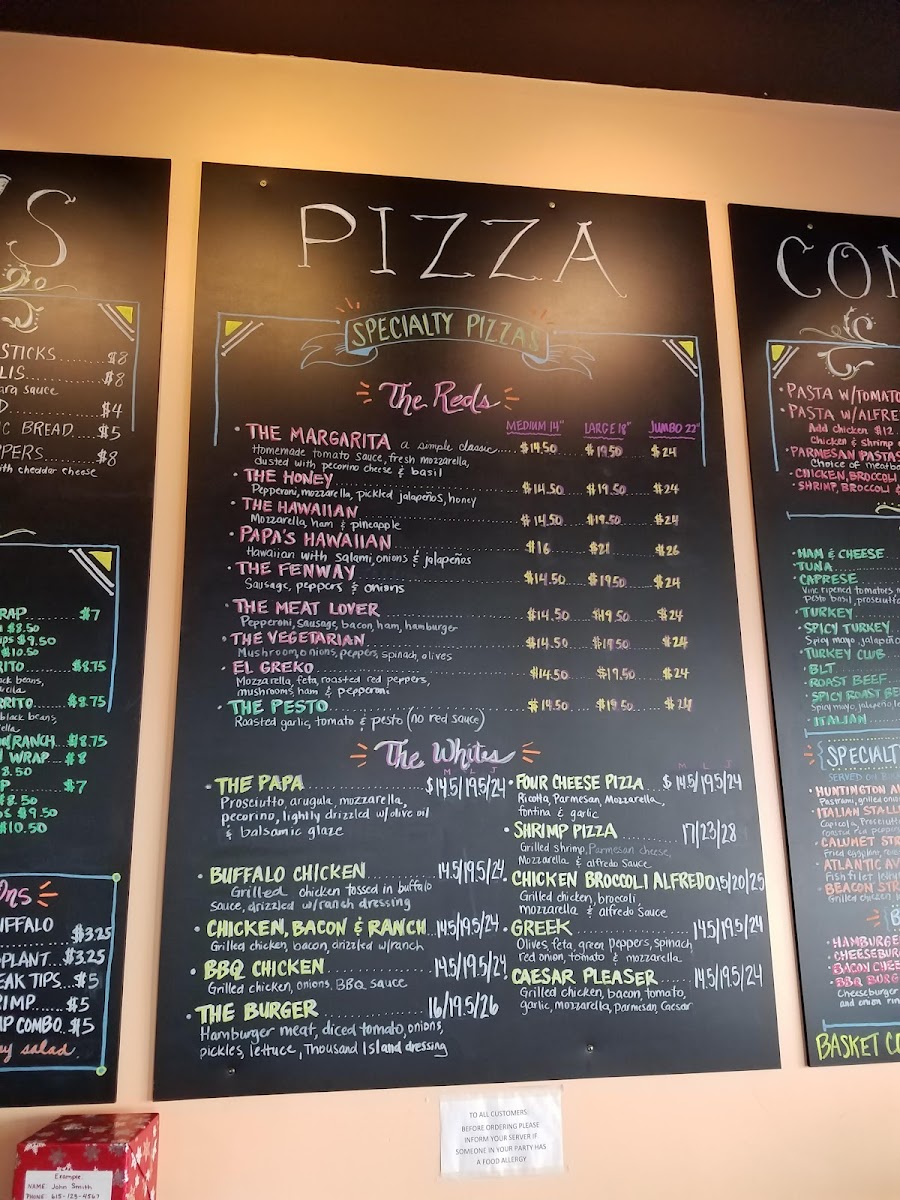 S
STICKS $8
LIS $8
ara sauce
$4
C BREAD $5
PPERS $8
ith cheddar cheese
RAP $7
$8.50
ps $9.50
$10.50
RITO $8.75
ack beans,
RRITO $8.75
black beans,
RANCH $8.75
WRAP $8
8.50
P $7
$8.50
$9.50
$10.50
ONS
UFFALO $3.25
PLANT $3.25
EAK TIPS $5
RIMP $5
P COMBO $15
salad
PIZZA
SPECIALTY PIZZAS
The Reds
MEDIUM 14" LARGE 18" JUMBO 22"
THE MARGARITA a simple classic $14.50 $19.50 $24
Homemade tomato sauce, fresh mozzarella,
dusted with pecorino cheese & basil
THE HONEY $14.50 $19.50 $24
Pepperoni, mozzarella, pickled jalapeños, honey
THE HAWAIIAN $14.50 $19.50 $24
Mozzarella, ham & pineapple
PAPA'S HAWAIIAN $16 $21 $26
Hawaiian with salami, onions & jalapeños
THE FENWAY $14.50 $19.50 $24
Sausage, peppers & onions
THE MEAT LOVER $14.50 $19.50 $24
Pepperoni, sausage, bacon, ham, hamburger
THE VEGETARIAN $14.50 $19.50 $24
Mushroom, onions, peppers, spinach, olives
EL GREKO $14.50 $19.50 $24
Mozzarella, feta, roasted red peppers,
mushrooms, ham & pepperoni
THE PESTO $14.50 $19.50 $24
Roasted garlic, tomato & pesto (no red sauce)
The Whites
M L J
THE PAPA $14.5/19.5/24
Prosciutto, arugula, mozzarella,
pecorino, lightly drizzled w/olive oil
& balsamic glaze
BUFFALO CHICKEN 14.5/19.5/24
Grilled chicken tossed in buffalo
sauce, drizzled w/ranch dressing
CHICKEN, BACON & RANCH 14.5/19.5/24
Grilled chicken, bacon, drizzled w/ranch
BBQ CHICKEN 14.5/19.5/24
Grilled chicken, onions, BBQ sauce
THE BURGER 16/19.5/26
Hamburger meat, diced tomato, onions,
pickles, lettuce, Thousand Island dressing
M L J
FOUR CHEESE PIZZA $14.5/19.5/24
Ricotta, Parmesan, Mozzarella,
fontina & garlic
SHRIMP PIZZA 17/23/28
Grilled shrimp, Parmesan cheese,
Mozzarella & alfredo sauce
CHICKEN BROCCOLI ALFREDO 15/20/25
Grilled chicken, brocoli,
mozzarella & alfredo sauce
GREEK 14.5/19.5/24
Olives, feta, green peppers, spinach
red onion, tomato & mozzarella
CAESAR PLEASER 14.5/19.5/24
Grilled chicken, bacon, tomato,
garlic, mozzarella, parmesan Caesar
CO
PASTA W/TOMATO
PASTA W/ALFRE
Add chicken $12
Chicken & Shrimp
PARMESAN PASTAS
Choice of meatba
CHICKEN, BROCCOLI
SHRIMP, BROCCOLI &
HAM & CHEESE
TUNA
CAPRESE
Vine ripened tomatoes,
pesto basil, prosciutto
TURKEY
SPICY TURKEY
Spicy mayo, jalapeño
TURKEY CLUB
BLT
ROAST BEEF
SPICY ROAST BE
Spicy mayo, jalapeño
ITALIAN
SPECIALT
SERVED ON
HUNTINGTON A
Pastrami, grilled onion
ITALIAN STALL
Capicola, Prosciutto
roasted red peppers
CALUMET STR
Fried eggplant,
ATLANTIC AV
Fish filet
BEACON STR
Grilled chicken
B
HAMBURGER
CHEESEBUR
BACON CHEE
BBQ BURG
Cheeseburger
and onion rin
BASKET CO
TO ALL CUSTOMERS:
BEFORE ORDERING PLEASE
INFORM YOUR SERVER IF
SOMEONE IN YOUR PARTY HAS
A FOOD ALLERGY
Example
NAME: John Smith
PHONE: 615-123-4567